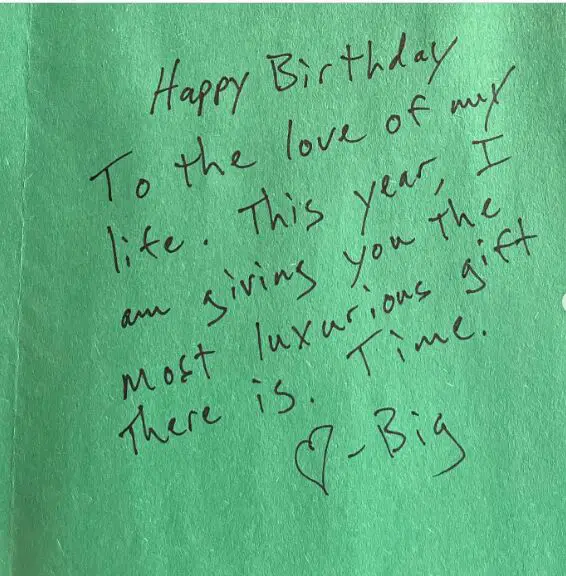 Happy Birthday
To the love of my
life. This year, I
am giving you the
most luxurious gift
there is. Time.
♡-Big